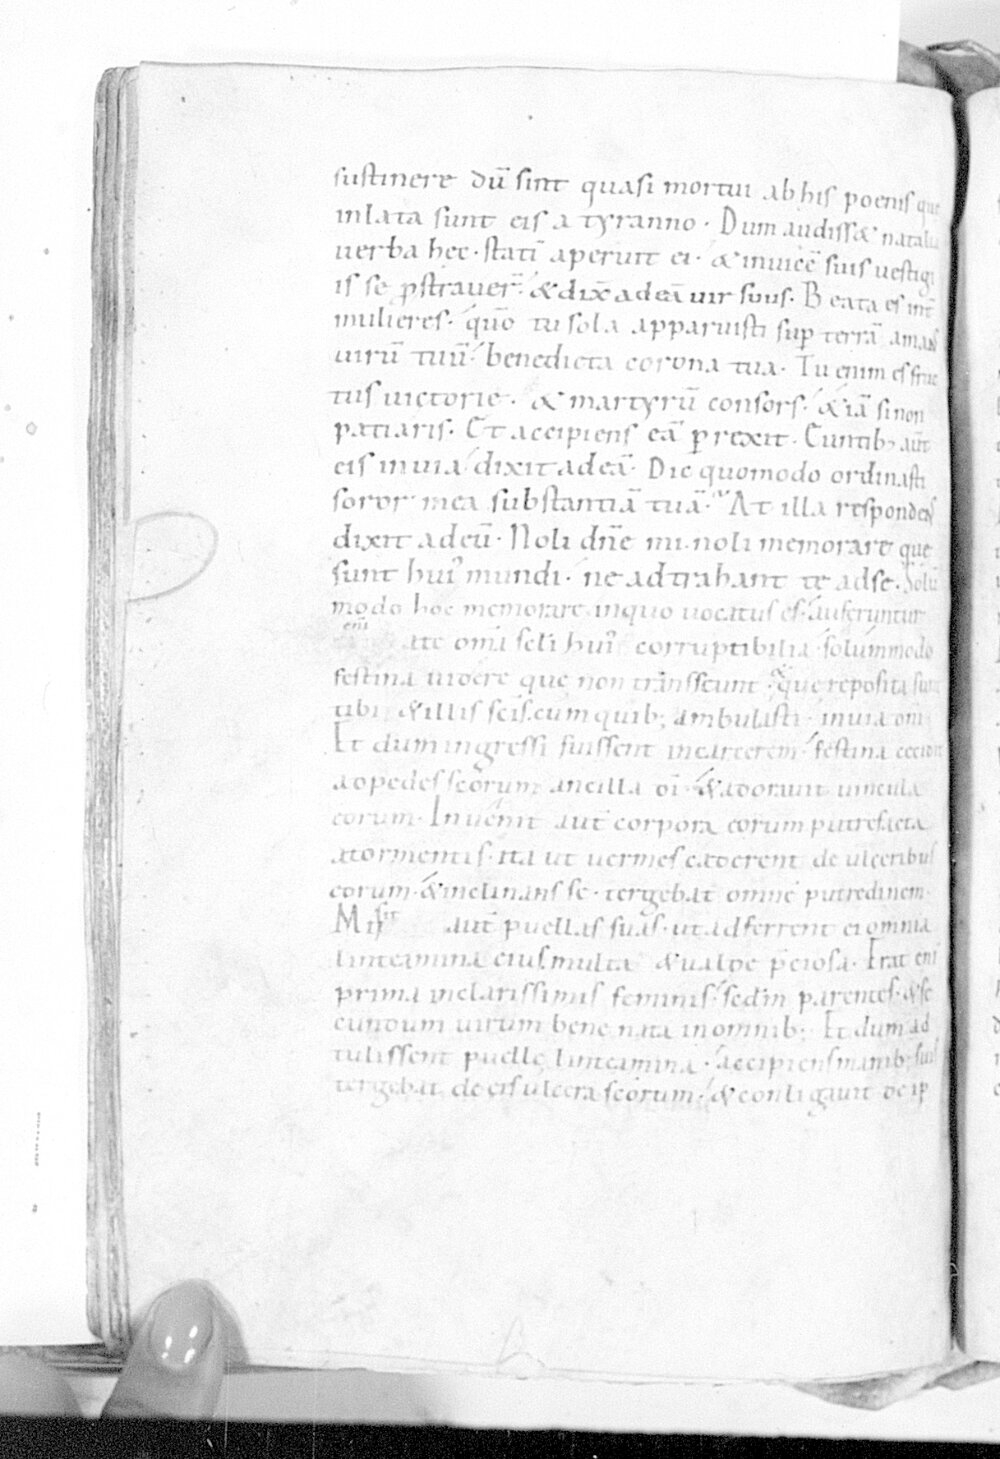 sustinere dū sint quasi mortui ab his poenis que
inlata sunt eis a tyranno · Dum audiss& natalia
uerba hec · statī aperuit ei · & inuicē suis uestigi
is se ꝓstrauer̄ · & dix̄ ad eā uir suus · Beata es int̄
mulieres · quō tu sola apparuisti suꝑ terrā amans
uirū tuū · benedicta corona tua · Tu enim es fruc
tus uictorie · & martyrū consors · & iā si non
patiaris · Et accipiens eā ꝑrexit · Euntib; aūt
eis in uia dixit ad eā · Dic quomodo ordinasti
soror mea substantiā tuā · At illa respondens
dixit ad eū · Noli dn̄e mi · noli memorare que
sunt hui' mundi · ne adtrahant te ad se · Solū
modo hoc memorare in quo uocatus es · auferuntur
eni a te om̄ia sc̄li hui' corruptibilia · solummodo
festina uidere que non transseunt · que reposita sunt
tibi & illis sc̄is · cum quib; ambulasti · in uia
Et dum ingressi fuissent in carcerem · festina cecidit
ad pedes sc̄orum ancilla dī · & adorauit uincula
eorum · Inuenit aut̄ corpora eorum putrefacta
a tormentis · ita ut uermes caderent de ulceribus
eorum · & inclinans se · tergebat omnē putredinem ·
Misit aut̄ puellas suas · ut adferrent ei omnia
linteamina eius · multa & ualde p̄ciosa · Erat eni
prima in clarissimis feminis · sed in parentes · & se
cundum uirum bene nata in omnib; Et dum ad
tulissent puelle linteamina · accipiens manib; suis
tergebat de eis ulcera sc̄orum · & conligauit de iꝑ